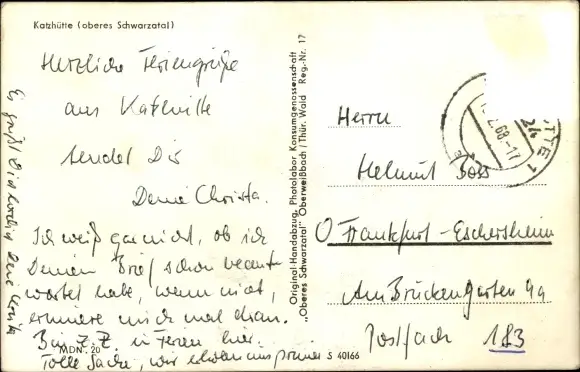 Katzhütte (oberes Schwarzatal)
Herzliche Feriengrüße
aus Katzhütte
sendet Dir
Deine Christa.
Ich weiß gar nicht, ob ich
Deinen Brief schon beant-
wortet habe, wenn nicht,
erinnere mich mal dran.
Bin z. Z. in Ferien hier.
Tolle Sache, wir erholen uns prima
Es grüßt Dich herzlich Deine
MDN. 20
S 40166
Original-Handabzug, Photolabor Konsumgenossenschaft
„Oberes Schwarzatal" Oberweißbach/Thür. Wald Reg.-Nr. 17
68-17
TTE 1
Herrn
Helmut Boss
Frankfurt-Eschersheim
Am Brückengarten 9a
Postfach 183